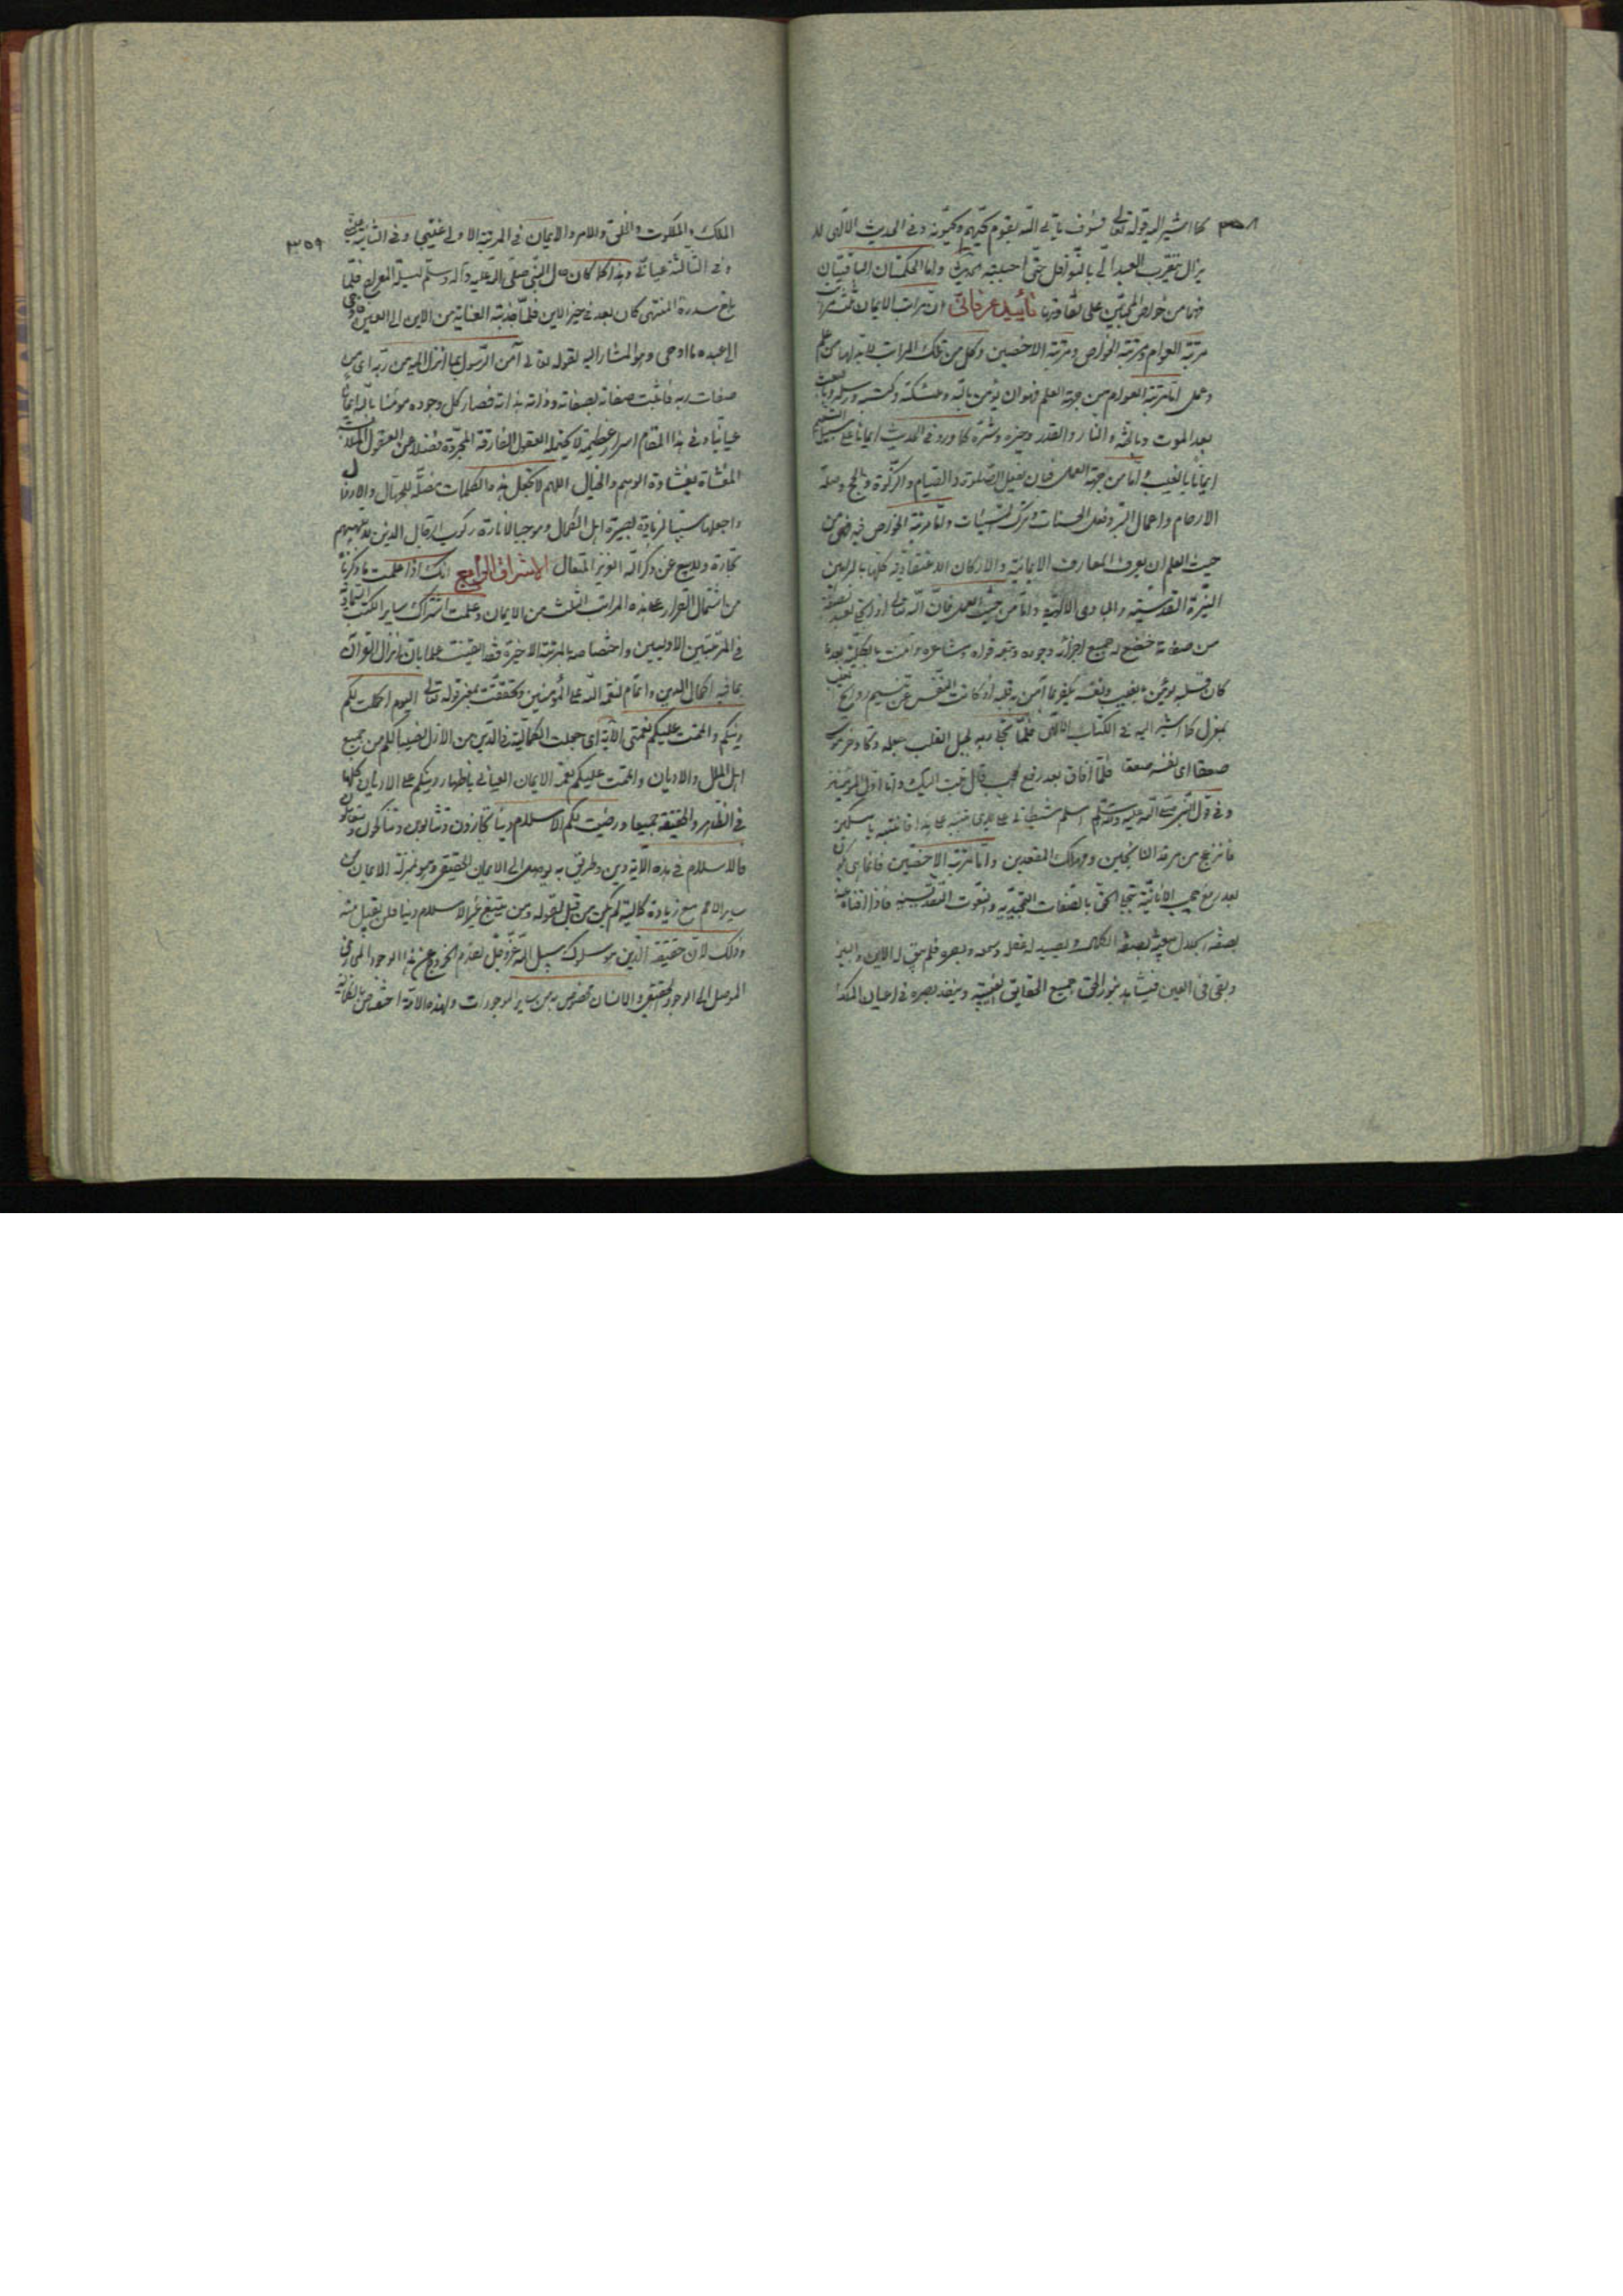 ٣٥٨ كما اشير اليه بقوله تعالى فسوف ياتي الله بقوم يحبهم ويحبونه وفي الحديث الالهي لا
يزال يتقرب العبد الي بالنوافل حتى احببته الحديث واما الحكمتان الباقيتان
فهما من خواص المحبين على تفاوتها تأييد عرفاني ان مراتب الايمان ثلث مراتب
مرتبة العوام ومرتبة الخواص ومرتبة الاخصين وكل من تلك المراتب لابد لها من علم
وعمل اما مرتبة العوام من جهة العلم فهو ان يؤمن بالله وملئكته وكتبه ورسله وبالبعث
بعد الموت وبالجنة والنار والقدر وخيره وشره كما ورد في الحديث ايمانا على سبيل التسليم
ايمانا بالغيب واما من جهة العمل فبان يفعل الصلوة والصيام والزكوة والحج وصلة
الارحام واعمال البر وفعل الحسنات وترك السيئات واما مرتبة الخواص فيه فهي من
حيث العلم ان يعرف المعارف الايمانية والاركان الاعتقادية كلها بالبراهين
النيرة القدسية والمبادي الالهية واما من حيث العمل فان الله تعالى اذا تجلى لعبد بصفة
من صفاته خضع له جميع اجزاء وجوده وتبعه قواه ومشاعره وآمنت بالكلية بعد ما
كان قبله يؤمن بالغيب ونفسه تكفر بما آمن به قلبه اذ كانت النفس عن تنسيم روايح الغيب
بمعزل كما اشير اليه في الكتاب الالهي فلما تجلى ربه لجبل القلب جعله دكا وخر موسى
صعقا اي نفسه صعقا فلما افاق بعد رفع الحجب قال تبت اليك وانا اول المؤمنين
وفي قول النبي صلى الله عليه وآله وسلم اسلم شيطاني على يدي تنبيه على هذا فانتبه يا مسكين
فانزعج من مرقد الناكبين ومهلك المقعدين واما مرتبة الاخصين فانما هي يكون
بعد رفع حجب الانانية بتجلي الحق بالصفات التمجيدية والنعوت التقديسية فاذا افناه عنه
بصفة الجلال يبقيه بصفة الكمال ويصير له عقله وسمعه وبصره فلم يبق له الاين والبين
وبقي في العين فيشاهد بنور الحق جميع الحقايق الغيبية وينفذ بصره في اعيان الملك
٣٥٩
الملك والملكوت والخلق والامر والايمان في المرتبة الاولى غيبي وفي الثانية عيني
وفي الثالثة عياني وهذا كما كان حال النبي صلى الله عليه وآله وسلم ليلة المعراج فلما
بلغ سدرة المنتهى كان بعد في حيز الاين فلما جذبته العناية من الاين الى العين فاوحى
الى عبده ما اوحى وهو المشار اليه بقوله تعالى آمن الرسول بما انزل اليه من ربه اي من
صفات ربه فاثبت صفاته بصفاته وذاته بذاته فصار كل وجوده مؤمنا بالله ايمانا
عيانيا وفي هذا المقام اسرار عظيمة لا يحتمله العقول المفارقة المجردة فضلا عن العقول الملابسة
المغشاة بغشاوة الوهم والخيال اللهم لا تجعل هذه الكلمات مضلة للجهال والارذال
واجعلها سببا لزيادة بصيرة اهل الكمال وموجبا لانارة ركوب ارقال الذين لا تلهيهم
تجارة ولا بيع عن ذكر الله العزيز المتعال الاشراق الرابع انك اذا علمت ما ذكرنا
من اشتمال القرآن على هذه المراتب الثلث من الايمان وعلمت اشتراك ساير الكتب السماوية
في المرتبتين الاوليين واختصاصه بالمرتبة الاخيرة فقد ايقنت علما بان انزال القرآن
بما فيه اكمال الدين واتمام لنعمة الله على المؤمنين وتحققت بمعنى قوله تعالى اليوم اكملت لكم
دينكم واتممت عليكم نعمتي الآية اي جعلت الكمالية في الدين من الازل نصيبا لكم من جميع
اهل الملل والاديان واتممت عليكم نعمة الايمان العياني باظهار دينكم على الاديان كلها
في الظاهر والحقيقة جميعا ورضيت لكم الاسلام دينا تجازون وتثابون وتناكحون وتتعاملون
فالاسلام في هذه الآية دين وطريق به يوصل الى الايمان الحقيقي وهو بمنزلة الايمان في
ساير الامم مع زيادة كمالية لم يكن من قبل لقوله ومن يبتغ غير الاسلام دينا فلن يقبل منه
وذلك لان حقيقة الدين هو سلوك سبيل الله عز وجل بقدم الخروج عن هذا الوجود المجازي
الموصل الى الوجود الحقيقي والانسان مخصوص به من ساير الموجودات ولهذه الامة اختصاص بالكمالية